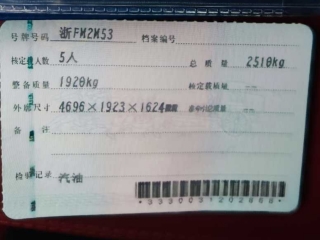 号牌号码 浙FM2M53 档案编号
核定载人数 5人 总质量 2510kg
整备质量 1920kg 核定载质量 --
外廓尺寸 4696×1923×1624mm 准牵引总质量 --
备注
检验记录 汽油